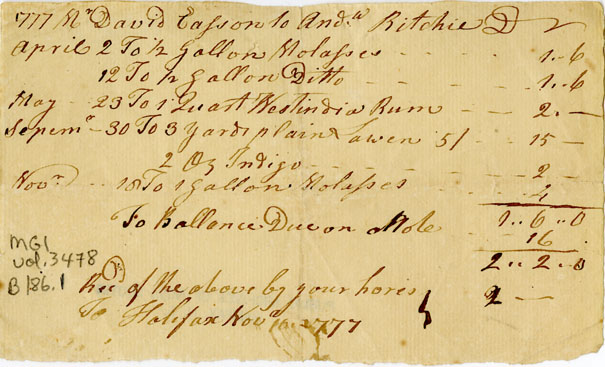 1777 Mr David Easson to Andw Ritchie Dr
April 2 To ½ Gallon Molasses - - - 1..6
12 To ½ Gallon Ditto - - - 1..6
May - 23 To 1 Quart Westindia Rum - - 2..-
Sepemr - 30 To 3 yards plain Lawen 5/ - - 15 -
2 Oz Indigo - - - 2 -
Novr - 18 To 1 Gallon Molasses - - - 4
To Ballance Due on Note 1..6..0
16
2..2..0
Recd of the above by your hores 2 - -
To Halifax Novr 1777
MG1
vol. 3478
B186.1